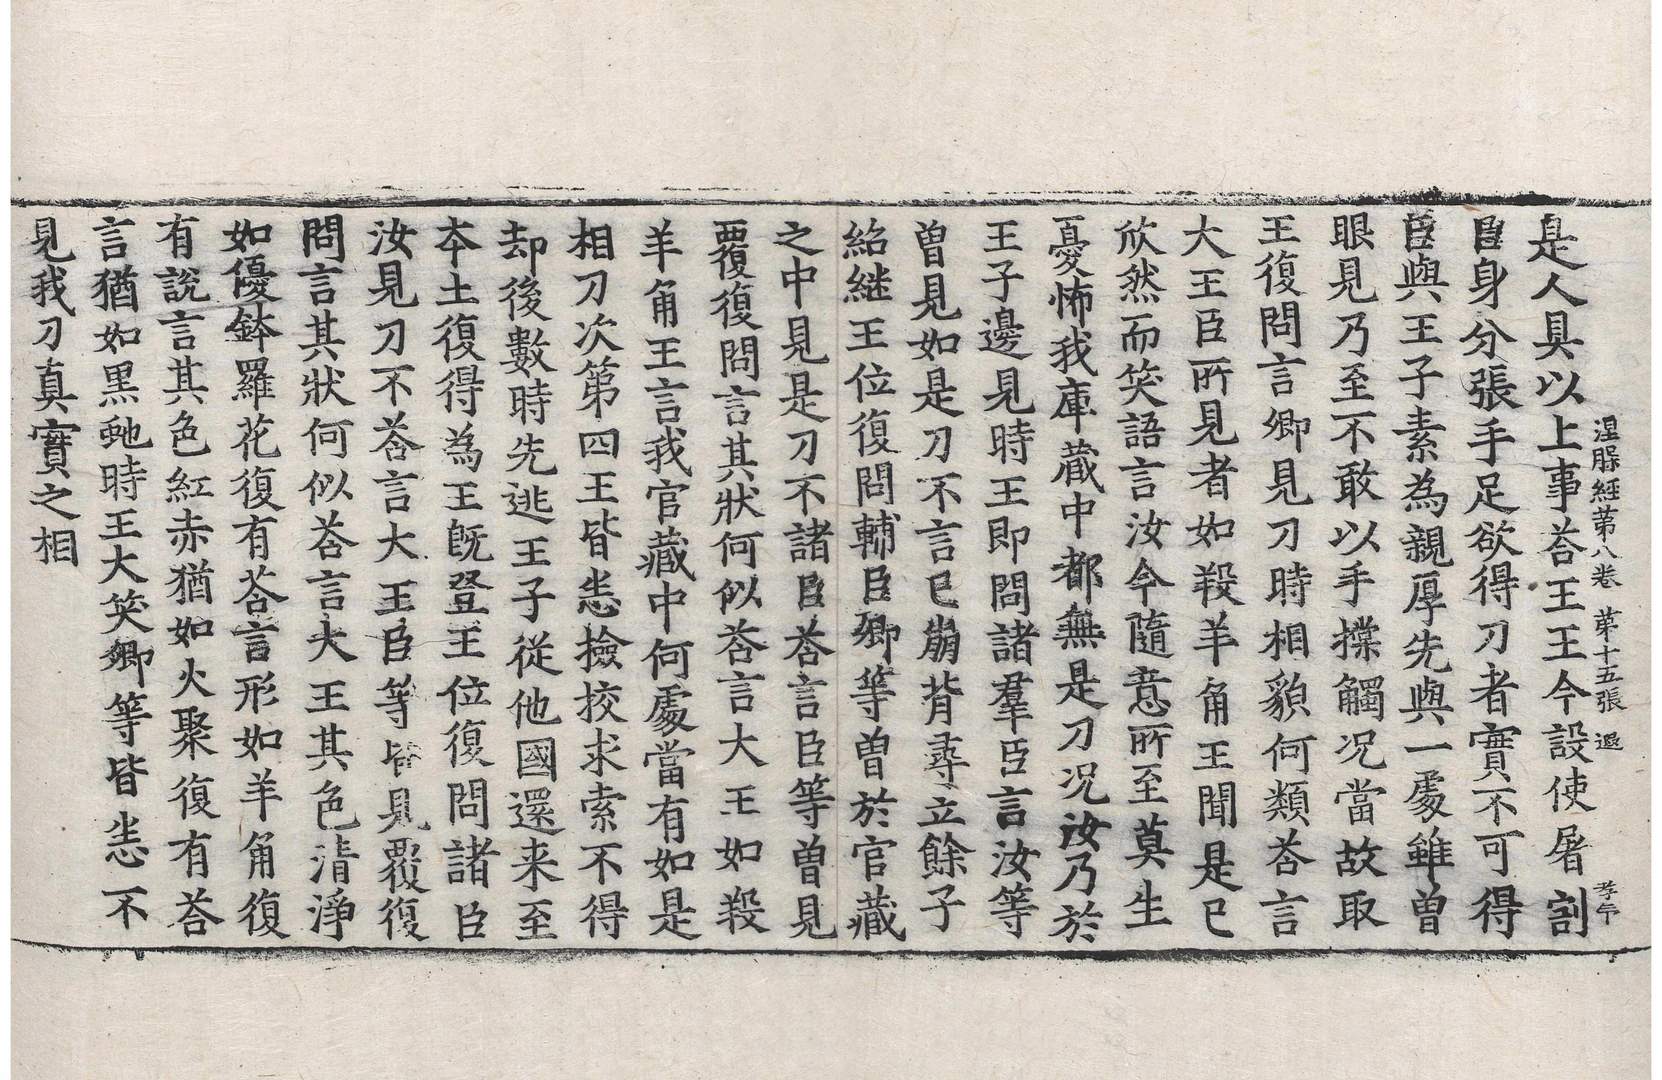 涅槃經第八卷 第十五張 遐 孝午
是人具以上事荅王王今設使屠割
臣身分張手足欲得刀者實不可得
臣與王子素為親厚先與一處雖曾
眼見乃至不敢以手摚觸况當故取
王復問言卿見刀時相貌何類荅言
大王臣所見者如羖羊角王聞是已
欣然而笑語言汝今隨意所至莫生
憂怖我庫蔵中都無是刀况汝乃於
王子邊見時王即問諸羣臣言汝等
曾見如是刀不言已崩背尋立餘子
紹継王位復問輔臣卿等曾於官藏
之中見是刀不諸臣荅言臣等曾見
覆復問言其狀何似荅言大王如羖
羊角王言我官藏中何處當有如是
相刀次第四王皆悉撿挍求索不得
却後數時先逃王子從他國還来至
夲土復得為王既登王位復問諸臣
汝見刀不荅言大王臣等皆見覆復
問言其狀何似荅言大王其色清淨
如優鉢羅花復有荅言形如羊角復
有說言其色紅赤猶如火聚復有荅
言猶如黒虵時王大笑卿等皆悉不
見我刀真實之相